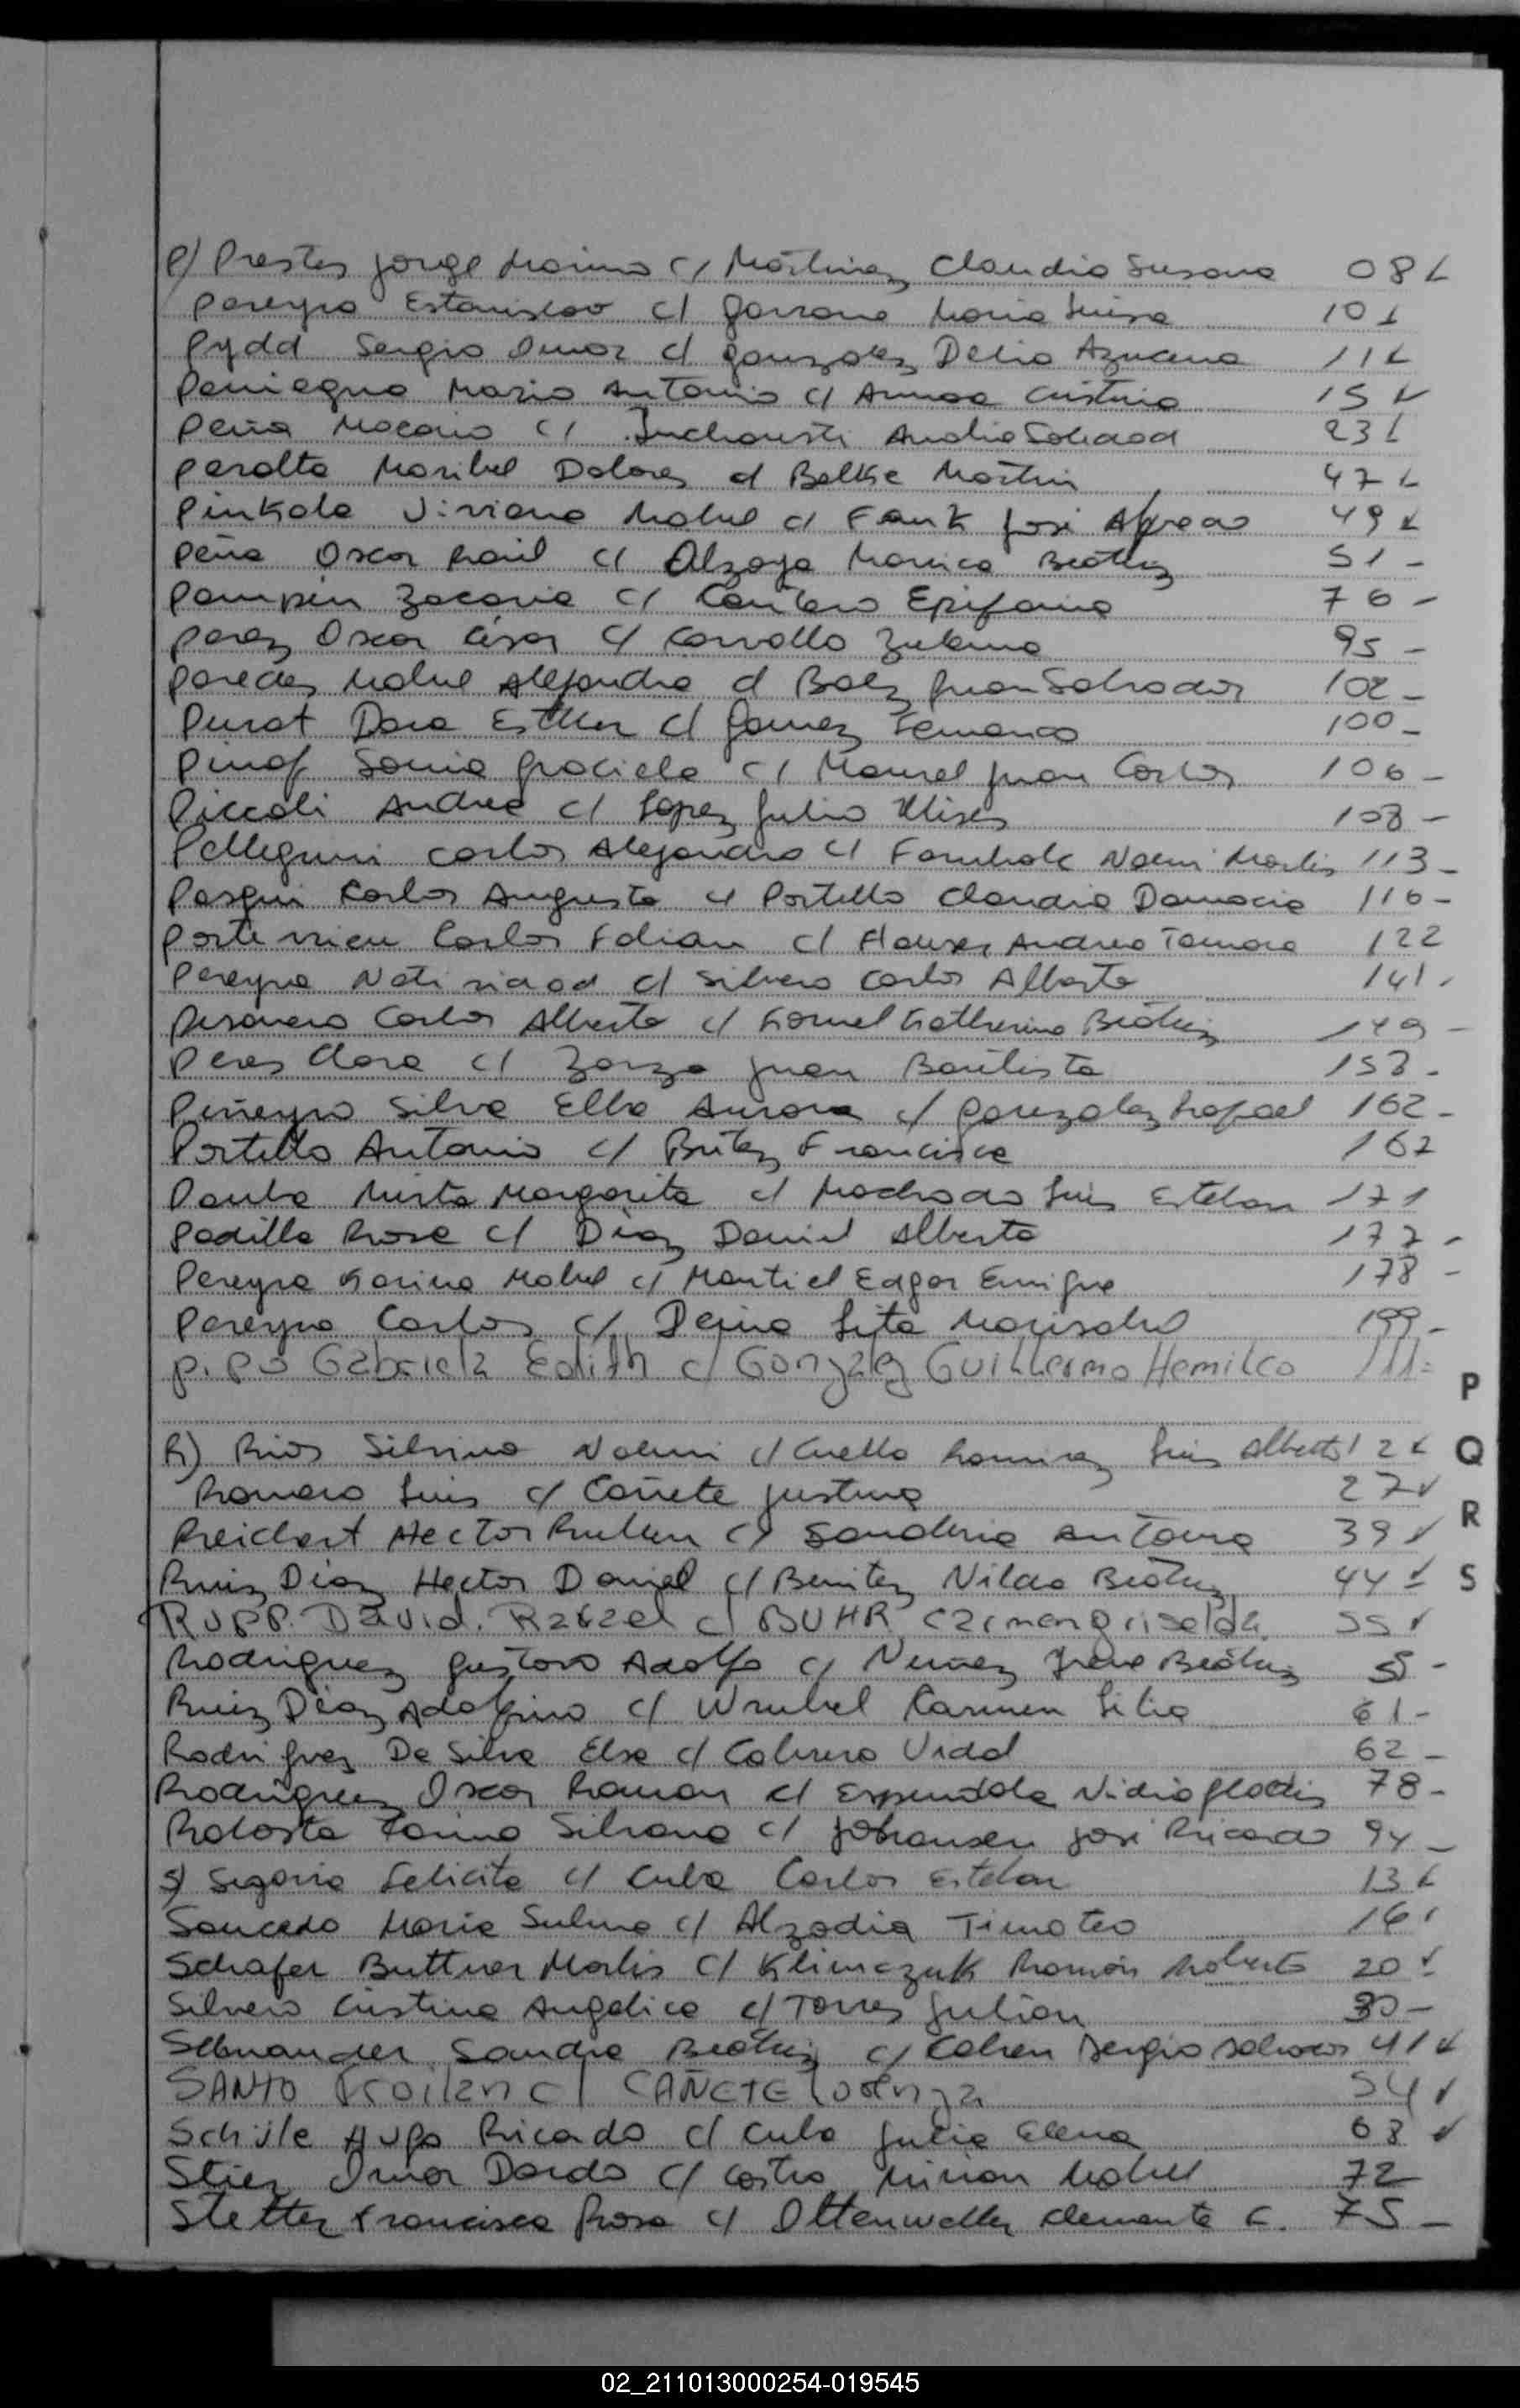 P) Prestes Jorge Marino c/ Martinez Claudia Susana 08
Pereyra Estanislao c/ Garzone Maria Luisa 10
Pydd Sergio Omar c/ Gonzalez Delia Azucena 11
Peniagua Mario Antonio c/ Arnoa Cristina 15
Peña Mocario c/ Analia Soledad 23
Peralta Maribel Dolores c/ Belke Martin 47
Pinkole Viviana Mabel c/ Fank José Alfredo 49
Peña Oscar Raúl c/ Alzaga Monica Beatriz 51 -
Pampin Zacaria c/ Cantero Epifania 76 -
Perez Oscar César c/ Carvallo Zulema 95 -
Paredes Mabel Alejandra c/ Baez Juan Salvador 102 -
Purat Dora Esther c/ Gomez Fernando 100 -
Pinaf Sonia Graciela c/ Mansel Juan Carlos 106 -
Piccoli Andrea c/ Lopez Julio Ulises 108 -
Pellegrini Carlos Alejandro c/ Noemi Marlis 113 -
Pasqui Carlos Augusto c/ Portillo Claudia Damacia 116 -
Carlos Fabian c/ Hauser Andrea Tamara 122
Pereyra Natividad c/ Silvero Carlos Alberto 141 -
Pesavero Carlos Alberto c/ Katherina Beatriz 149 -
Peres Clara c/ Zarza Juan Bautista 153 -
Piñeyro Silva Elba Aurora c/ Gonzalez Rafael 162 -
Portillo Antonio c/ Britez Francisca 167
Mirta Margarita c/ Machado Luis Esteban 171
Padilla Rosa c/ Diaz Daniel Alberto 177 -
Pereyra Karina Mabel c/ Montiel Edgar Enrique 178 -
Pereyra Carlos c/ Lita Marisabel 199 -
Pipo Gabriela Edith c/ Gonzalez Guillermo Hemilco 111 -
P
R) Rios Silvina Noemi c/ Cuello Ramirez Luis Alberto 12
Q
Romero Luis c/ Cañete Justina 27
Reichert Hector Ruben c/ Sanabria Antonia 39
R
Ruiz Diaz Hector Daniel c/ Benitez Nilda Beatriz 44
S
Rupp. David. Rafael c/ BUHR Carmen Griselda 55
Rodriguez Gustavo Adolfo c/ Nuñez Irene Beatriz 5 -
Ruiz Diaz Adolfino c/ Wrubel Carmen Lilia 61 -
Rodriguez De Silva Elsa c/ Cabrera Vidal 62 -
Rodriguez Oscar Ramon c/ Espindola Nidia Gladis 78 -
Silvana c/ Johansen José Ricardo 94 -
S) Segovia Felicita c/ Cuba Carlos Esteban 13
Saucedo Maria Sulma c/ Alzadia Timoteo 16
Schafer Buttner Marlis c/ Klimczuk Ramón Roberto 20
Silvero Cristina Angelica c/ Torres Julian 30 -
Sandra Beatriz c/ Cabren Sergio Salvador 41
SANTO Froilan c/ CAÑETE Lorenza 54
Schüle Hugo Ricardo c/ Cuba Julia Elena 68
Stier Omar Dardo c/ Castro Mirian Mabel 72
Stetter Francisca Rosa c/ Ottenweller Clemente C. 75 -
02_211013000254-019545